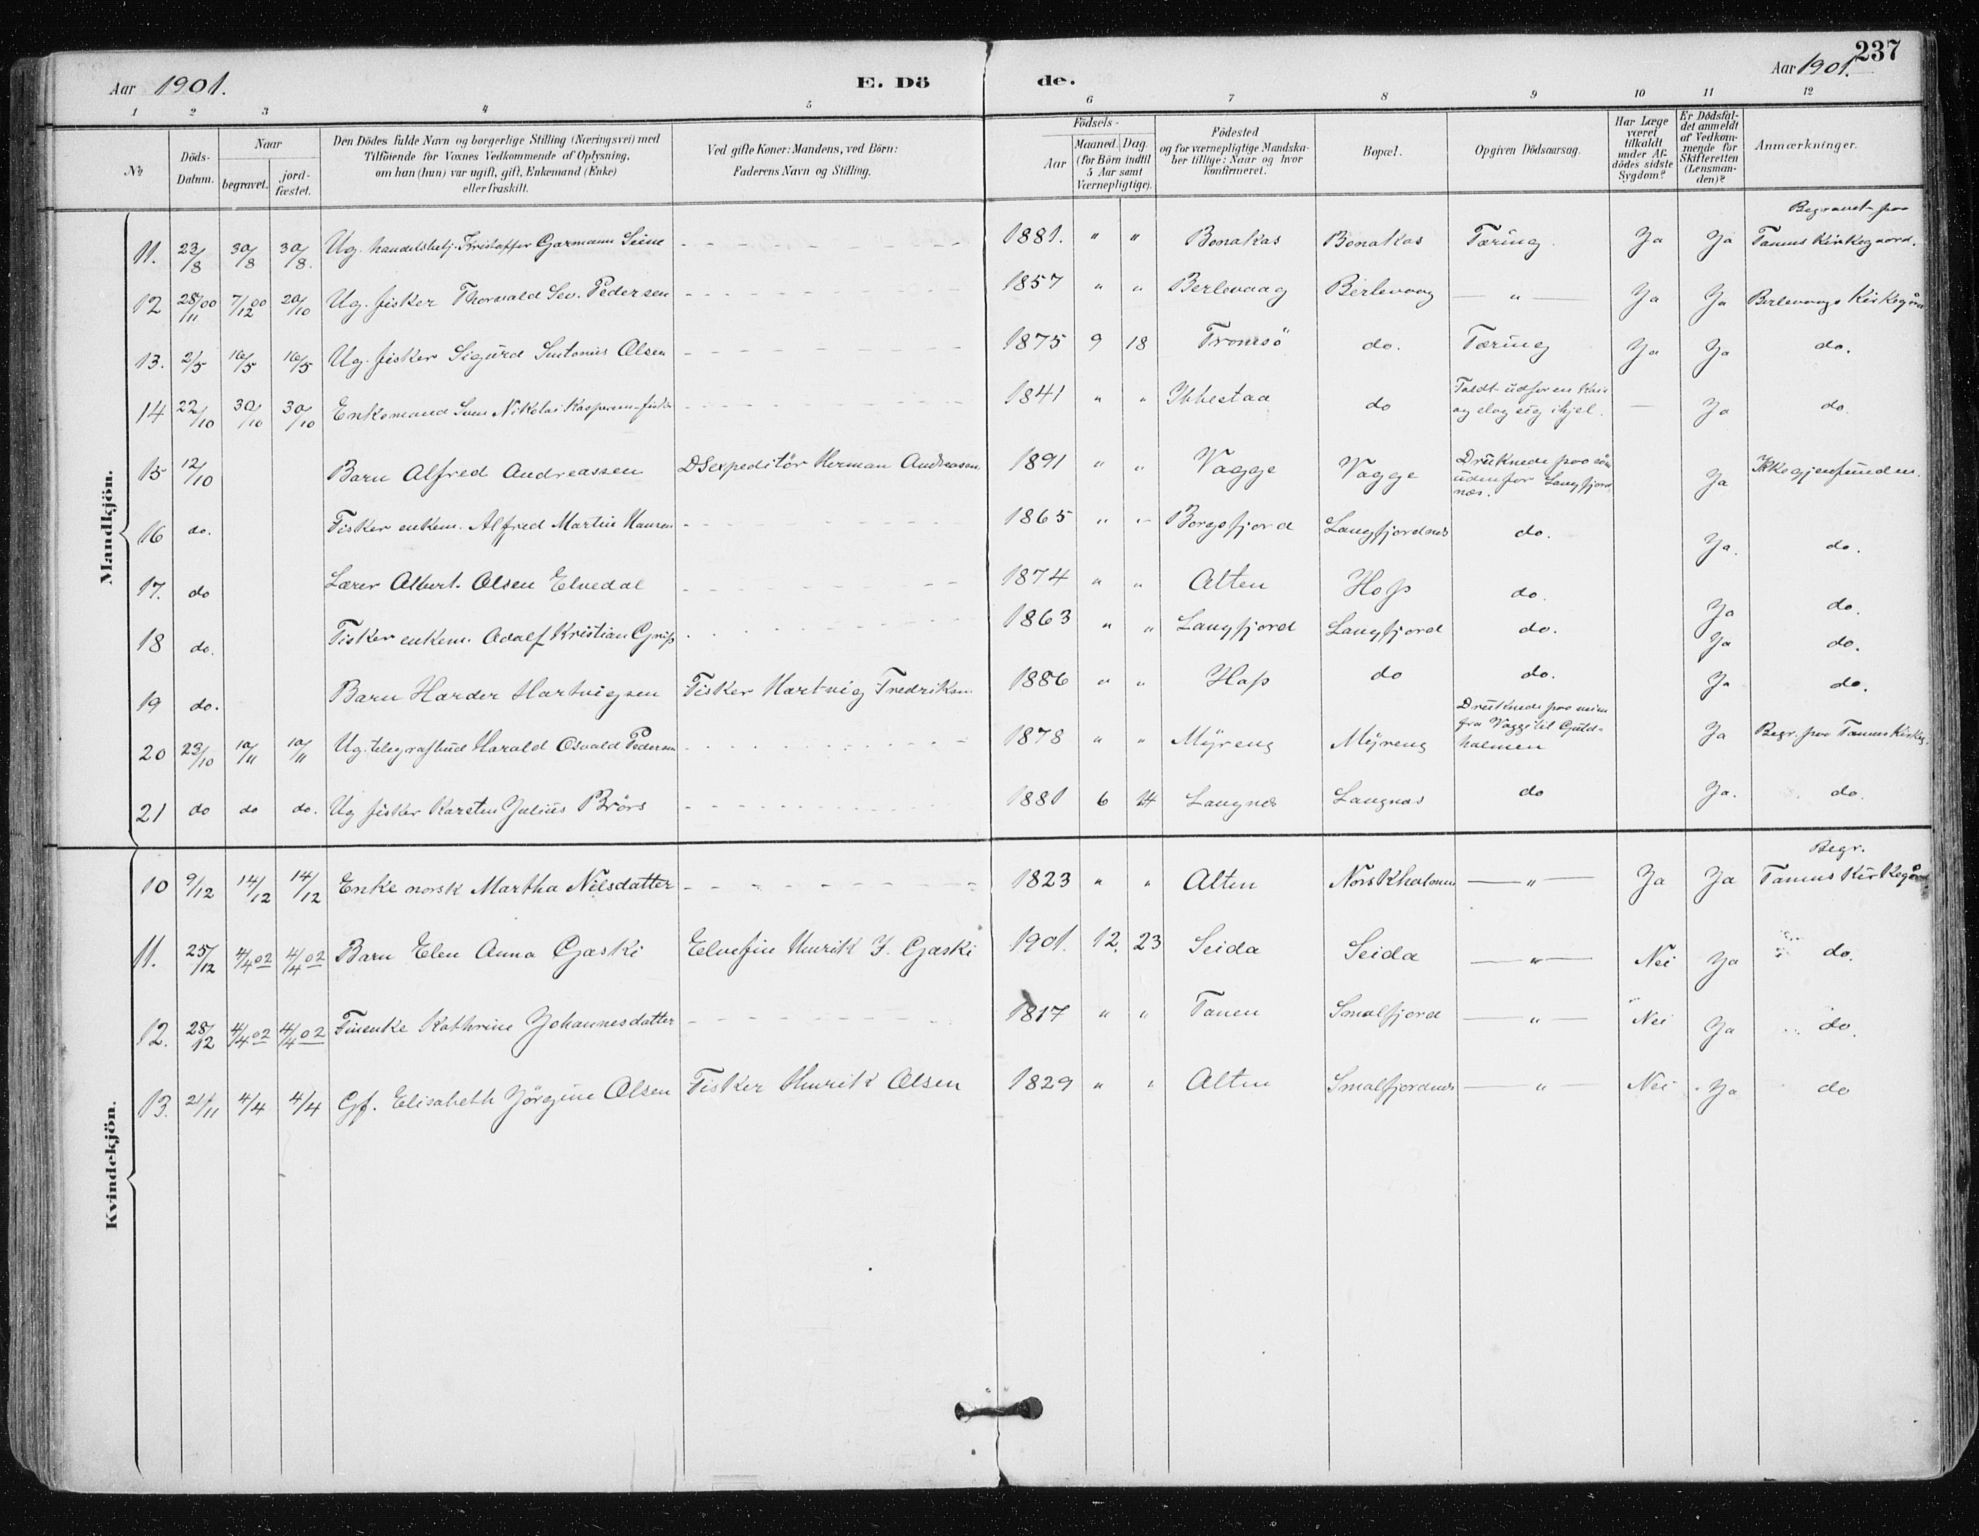 237
Aar 1901. E. Dö de. Aar 1901.
1 2 3 4 5 6 7 8 9 10 11 12
№ Döds-Datum. Naar begravet. jord-fæstet. Den Dödes fulde Navn og borgerlige Stilling (Næringsvei) med Tilföiende for Voxnes Vedkommende af Oplysning, om han (hun) var ugift, gift, Enkemand (Enke) eller fraskilt. Ved gifte Koner: Mandens, ved Börn: Faderens Navn og Stilling. Födsels- Aar Maaned. Dag. (for Börn indtil 5 Aar samt Værnepligtige). Födested og for værnepligtige Mandskaber tillige: Naar og hvor konfirmeret. Bopæl. Opgiven Dödsaarsag. Har Læge været tilkaldt under Afdödes sidste Sygdom? Er Dödsfaldet anmeldt af Vedkommende for Skifteretten (Lensmanden)? Anmærkninger.
Mandkjön.
11. 23/8 30/8 30/8. Ug. handelsbetj. Kristoffer Garmann 1881. " " Bonakas Bonakas Tæring. Ja Ja Begravet paa Tanens Kirkegaard.
12 28/11 00 7/12 00 20/10 Ug. fisker Thorvald Sev. Pedersen 1857 " " Berlevaag Berlevaag — " — Ja Ja Berlevaags Kirkegård
13. 2/5 16/5 16/5 Ug. fisker Sigurd Olsen 1875 9 18 Tromsö do. Tæring Ja Ja do.
14 22/10 30/10 30/10 Enkemand Nikolai Kaspersen fisker 1841 " " Ibbestad do Faldt udfor en Kai og slog sig ihjel. — Ja do.
15 12/10 Barn Alfred Andreassen DSexpeditör Herman Andreassen 1891 " " Vagge Vagge Druknede paa udenfor Langfjordnæs. Ja Ikke gjenfunden.
16 do. Fisker enkem. Alfred Martin Hansen 1865 " " Borgefjord Langfjordnes do. Ja. do.
17. do Lærer Albert Olsen Elvedal 1874 " " Alten Hop do. Ja do.
18 do. Fisker enkem. Adolf Kristian 1863 " " Langfjord Langfjord do. Ja do.
19 do. Barn Harder Hartvigsen Fisker Hartvig Fredriksen 1886 " " Hop do do. Ja do.
20 23/10 10/11 10/11 Ug. telegrafbud Harald Osvald Pedersen 1878 " " Myreng Myreng Druknede paa veien fra Vagge til Guldholmen Ja Begr. paa Tanens Kirkeg.
21 do do do. Ug fisker Karsten Julius Brörs 1881 6 14 Langnes Langnæs do Ja. do.
Kvindekjön.
10 9/12 14/12 14/12 Enke norsk Martha Nilsdatter 1823 " " Alten Norskholmen — " — Ja Ja Begr. Tanens Kirkegård
11. 25/12 4/4 02 4/4 02 Barn Elen Anna Gaski Elvefin Henrik I. Gaski 1901. 12. 23 Seida Seida — " — Nei Ja do.
12. 28/12 4/4 02 4/4 02 Finenke Kathrine Johannesdatter 1817 " " Tanen Smalfjord — " — Nei Ja do.
13. 21/11 4/4 4/4 Gf. Elisabeth Jörgine Olsen Fisker Henrik Olsen 1829 " " Alten Smalfjordnes — " — Nei Ja do